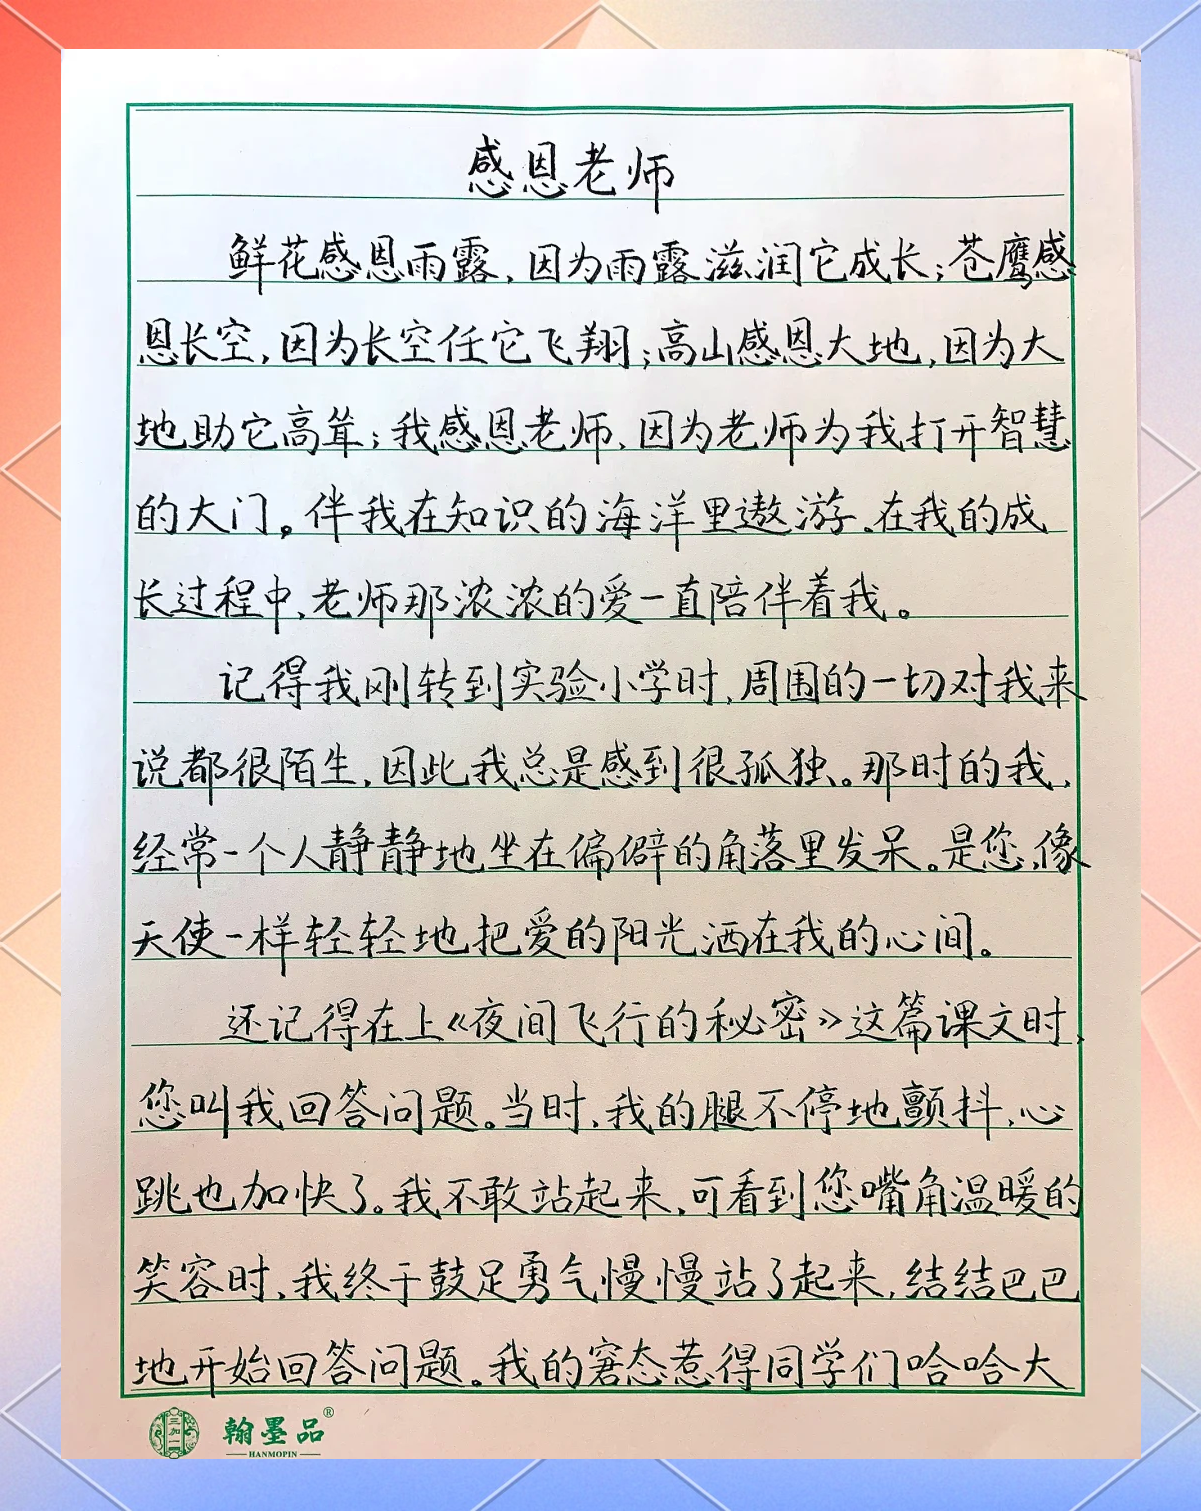 感恩老师
鲜花感恩雨露,因为雨露滋润它成长;苍鹰感
恩长空,因为长空任它飞翔;高山感恩大地,因为大
地助它高耸;我感恩老师,因为老师为我打开智慧
的大门。伴我在知识的海洋里遨游,在我的成
长过程中,老师那浓浓的爱一直陪伴着我。
记得我刚转到实验小学时,周围的一切对我来
说都很陌生,因此我总是感到很孤独。那时的我,
经常一个人静静地坐在偏僻的角落里发呆。是您,像
天使一样轻轻地把爱的阳光洒在我的心间。
还记得在上《夜间飞行的秘密》这篇课文时,
您叫我回答问题。当时,我的腿不停地颤抖,心
跳也加快了。我不敢站起来,可看到您嘴角温暖的
笑容时,我终于鼓足勇气慢慢站了起来,结结巴巴
地开始回答问题。我的窘态惹得同学们哈哈大
三加一 翰墨品®
HANMOPIN